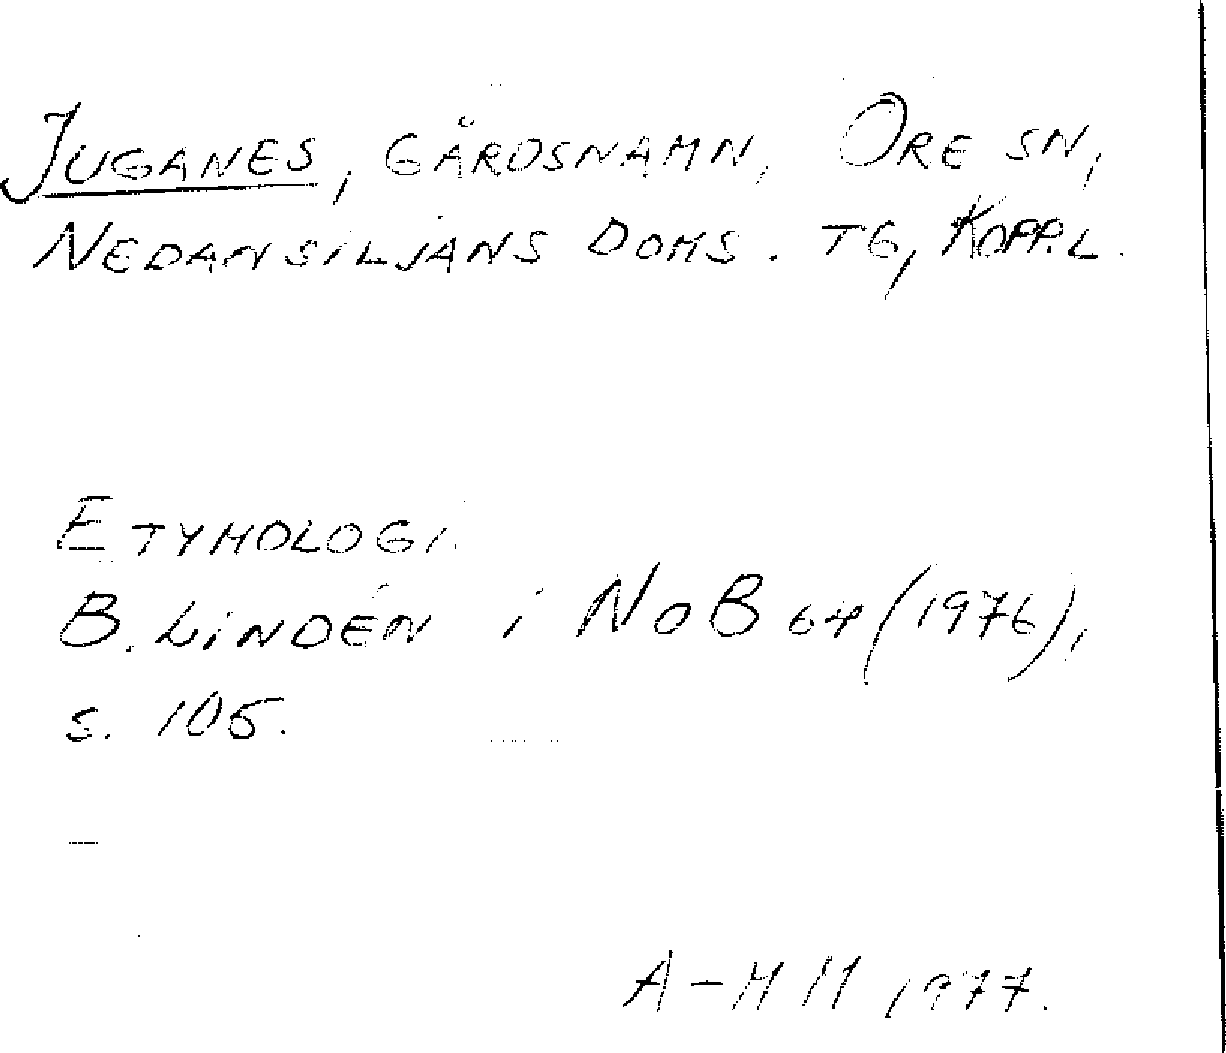 JUGANES, GÅRDSNAMN, ORE SN,
NEDANSILJANS DOMS. TG, KOPP.L.
ETYMOLOGI.
B. LINDÉN i NoB 64 (1976),
s. 105.
A-MM 1977.